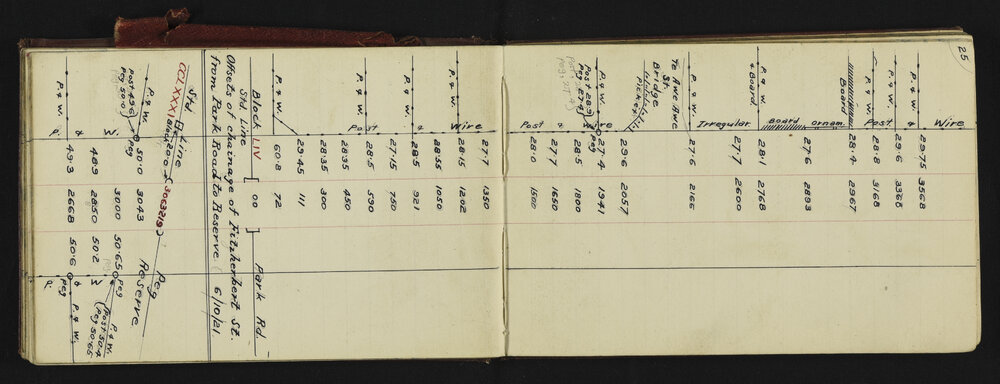 25
P. & W. 29·75 3568
Wire
P. & W. 29·6 3365
&
Post 28·8 3168
Board 28·4 2967
Ornam. 27·6 2893
Board
P. & W. 28·1 2768
& Board
27·7 2600
Irregular
P. & W. 27·6 2166
To Awe Awe
St.
Bridge
Pickets 29·6 2057
P. & W. Wire 27·4 1941
Post 28·3
Peg 27·4
Peg
28·5 1800
&
27·7 1650
Post 28·0 1500
27·7 1350
Wire 28·15 1202
28·55 1050
P. & W. & 28·5 921
27·15 750
Post 28·5 590
28·35 450
28·35 300
29·45 111
P. & W. 60·8 72
Block LIV [ 00 ] Park Rd.
Std. Line
Offsets of chainage of Fitzherbert St.
from Park Road to Reserve. (6/10/21.
Std. Line
CCLXXXI Block 20·0 & (3063219) Peg
Reserve
P. & W. Peg 50·0 3043
Post 49·6
Peg 50·0
W. 3000 50·65 Peg P. & W.
Post 50·4
Peg 50·65
& 48·9 2850 50·2 W
P. & W. P. 49·3 2668 50·6 Peg & P. & W.
P.